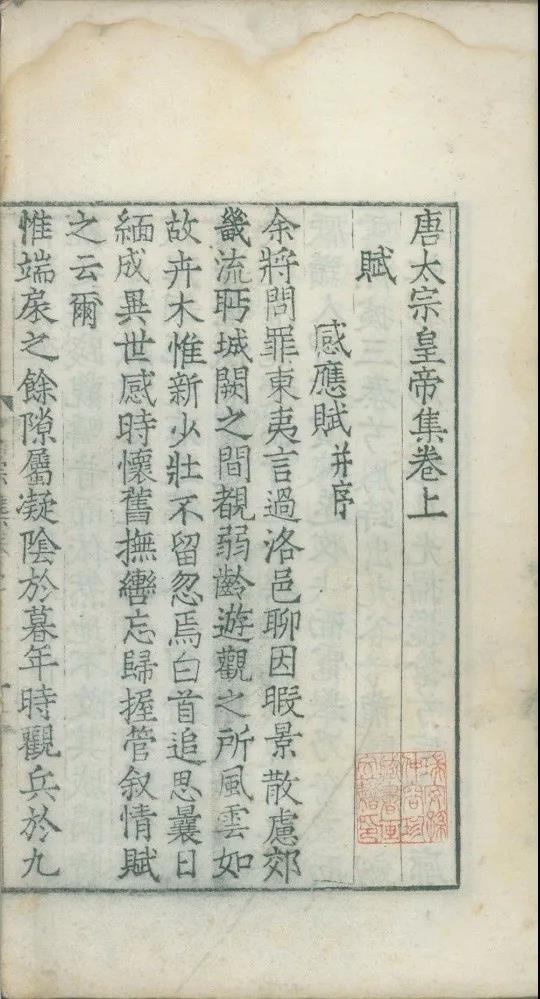 唐太宗皇帝集卷上
賦
感應賦并序
余將問罪東夷言過洛邑聊因暇景散慮郊
畿流眄城闕之間覩弱齡遊觀之所風雲如
故卉木惟新少壯不留忽焉白首追思曩日
緬成異世感時懷舊撫轡忘歸握管叙情賦
之云爾
惟端扆之餘隙屬凝陰於暮年時觀兵於九